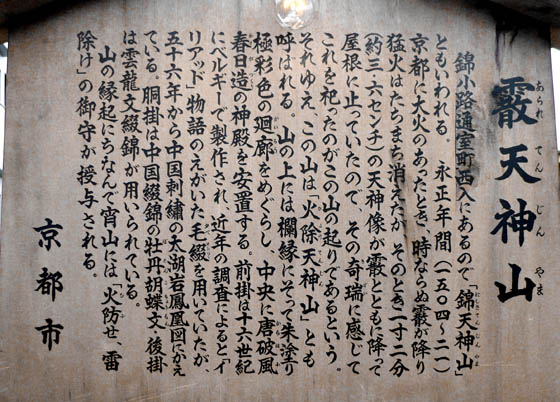 霰天神山
あられてんじんやま
錦小路通室町西入にあるので「錦天神山」
にしきてんじんやま
ともいわれる。永正年間(一五〇四〜二一)
京都に大火のあったとき、時ならぬ霰が降り
猛火はたちまち消えたが、そのとき一寸二分
(約三・六センチ)の天神像が霰とともに降って
屋根に止っていたので、その奇瑞に感じて
これを祀ったのがこの山の起りであるという。
それゆえ、この山は「火除天神山」とも
呼ばれる。山の上には欄縁にそって朱塗り
極彩色の廻廊をめぐらし、中央に唐破風
春日造の神殿を安置する。前掛は十六世紀
にベルギーで製作され、近年の調査によると「イ
リアッド」物語のえがいた毛綴を用いていたが、
五十六年から中国刺繍の太湖岩鳳凰図にかえ
ている。胴掛は中国綴錦の牡丹胡蝶文、後掛
は雲龍文綴錦が用いられている。
山の縁起にちなんで宵山には「火防せ、雷
除け」の御守が授与される。
京都市